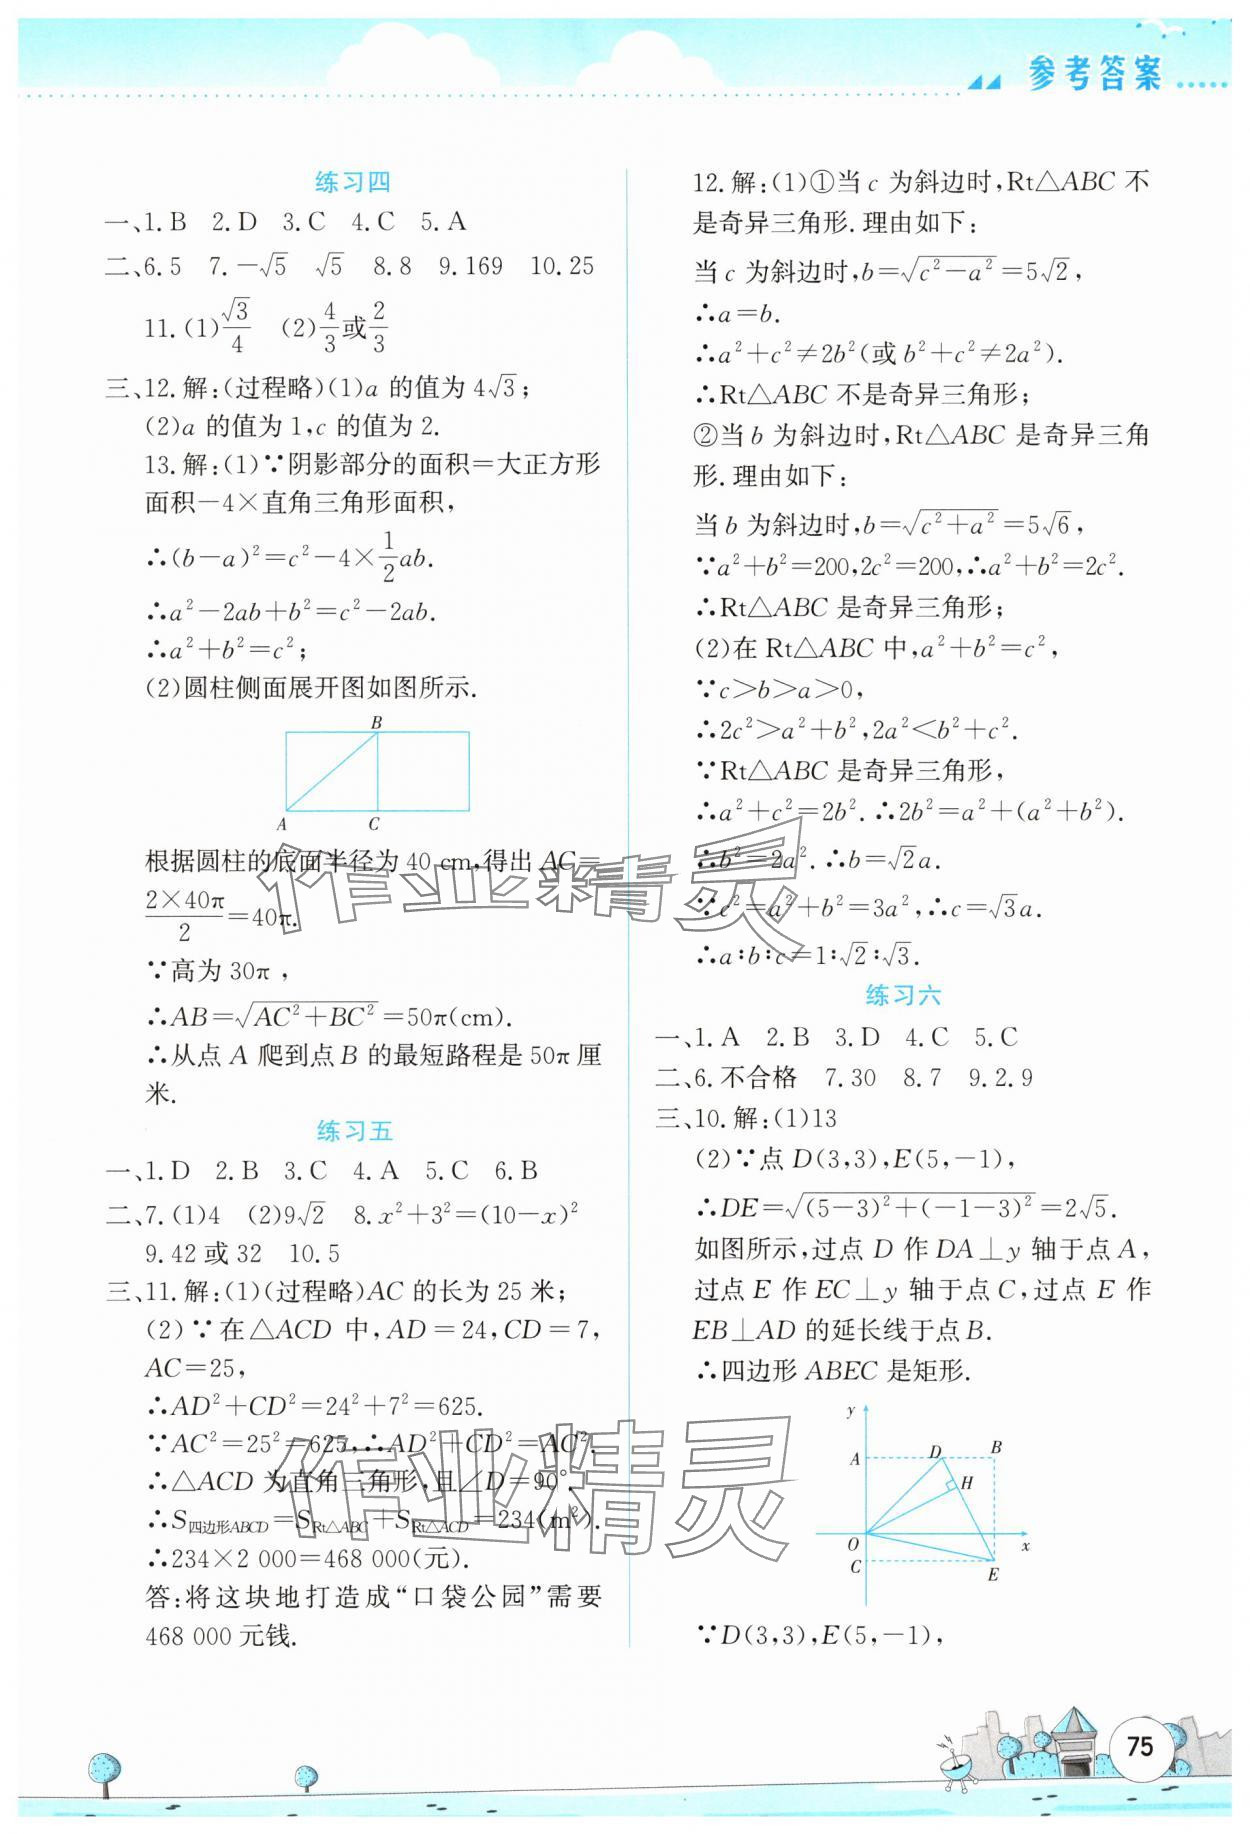 参考答案
练习四
一、1.B 2.D 3.C 4.C 5.A
二、6.5 7.-√5 √5 8.8 9.169 10.25
11.(1)√3/4 (2)4/3或2/3
三、12.解:(过程略)(1)a 的值为 4√3;
(2)a 的值为 1,c 的值为 2.
13.解:(1)∵阴影部分的面积=大正方形
面积-4×直角三角形面积,
∴(b-a)²=c²-4×1/2ab.
∴a²-2ab+b²=c²-2ab.
∴a²+b²=c²;
(2)圆柱侧面展开图如图所示.
B
A C
根据圆柱的底面半径为 40 cm,得出 AC=
2×40π/2=40π.
∵高为 30π ,
∴AB=√(AC²+BC²)=50π(cm).
∴从点 A 爬到点 B 的最短路程是 50π 厘
米.
练习五
一、1.D 2.B 3.C 4.A 5.C 6.B
二、7.(1)4 (2)9√2 8.x²+3²=(10-x)²
9.42 或 32 10.5
三、11.解:(1)(过程略)AC 的长为 25 米;
(2)∵在△ACD 中,AD=24,CD=7,
AC=25,
∴AD²+CD²=24²+7²=625.
∵AC²=25²=625,∴AD²+CD²=AC².
∴△ACD 为直角三角形,且∠D=90°.
∴S四边形ABCD=SRt△ABC+SRt△ACD=234(m²).
∴234×2 000=468 000(元).
答:将这块地打造成“口袋公园”需要
468 000 元钱.
12.解:(1)①当 c 为斜边时,Rt△ABC 不
是奇异三角形.理由如下:
当 c 为斜边时,b=√(c²-a²)=5√2,
∴a=b.
∴a²+c²≠2b²(或 b²+c²≠2a²).
∴Rt△ABC 不是奇异三角形;
②当 b 为斜边时,Rt△ABC 是奇异三角
形.理由如下:
当 b 为斜边时,b=√(c²+a²)=5√6,
∵a²+b²=200,2c²=200,∴a²+b²=2c².
∴Rt△ABC 是奇异三角形;
(2)在 Rt△ABC 中,a²+b²=c²,
∵c>b>a>0,
∴2c²>a²+b²,2a²<b²+c².
∵Rt△ABC 是奇异三角形,
∴a²+c²=2b².∴2b²=a²+(a²+b²).
∴b²=2a².∴b=√2a.
∵c²=a²+b²=3a²,∴c=√3a.
∴a∶b∶c=1∶√2∶√3.
练习六
一、1.A 2.B 3.D 4.C 5.C
二、6.不合格 7.30 8.7 9.2.9
三、10.解:(1)13
(2)∵点 D(3,3),E(5,-1),
∴DE=√((5-3)²+(-1-3)²)=2√5.
如图所示,过点 D 作 DA⊥y 轴于点 A,
过点 E 作 EC⊥y 轴于点 C,过点 E 作
EB⊥AD 的延长线于点 B.
∴四边形 ABEC 是矩形.
y
A D B
H
O x
C E
∵D(3,3),E(5,-1),
作业精灵
作业精灵
75